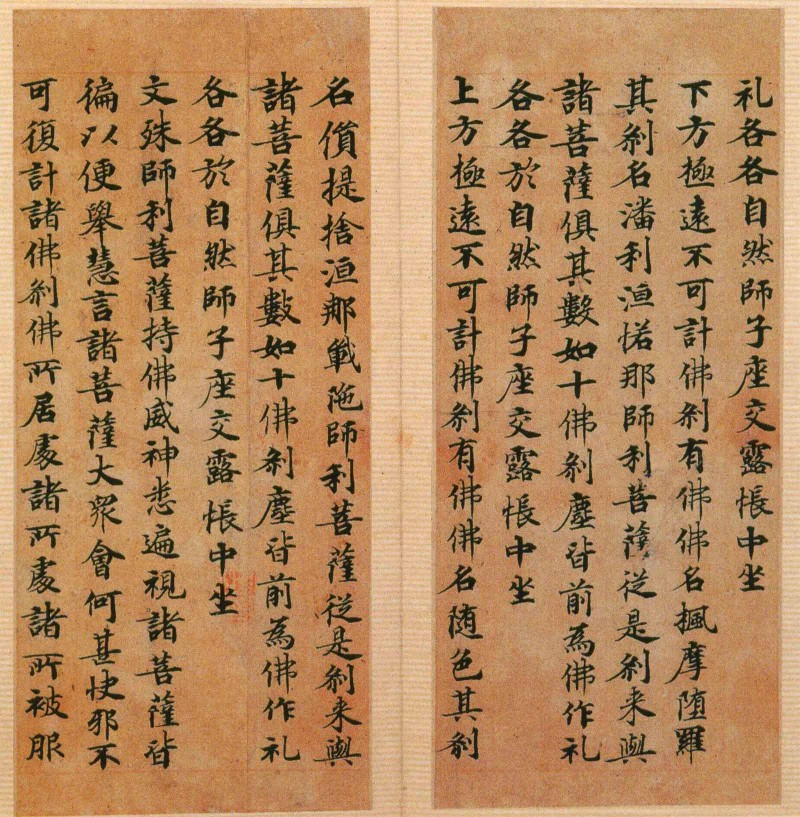 礼各各自然師子座交露帳中坐
下方極遠不可計佛刹有佛佛名捤摩堕羅
其刹名潘利洹惒那師利菩薩従是刹来與
諸菩薩俱其數如十佛刹塵皆前為佛作礼
各各於自然師子座交露帳中坐
上方極遠不可計佛刹有佛佛名随色其刹
名償提捨洹那戰陁師利菩薩従是刹来與
諸菩薩俱其數如十佛刹塵皆前為佛作礼
各各於自然師子座交露帳中坐
文殊師利菩薩持佛威神悉遍視諸菩薩皆
徧以便舉慧言諸菩薩大衆會何甚快邪不
可復計諸佛刹佛所居處諸所處諸所被服